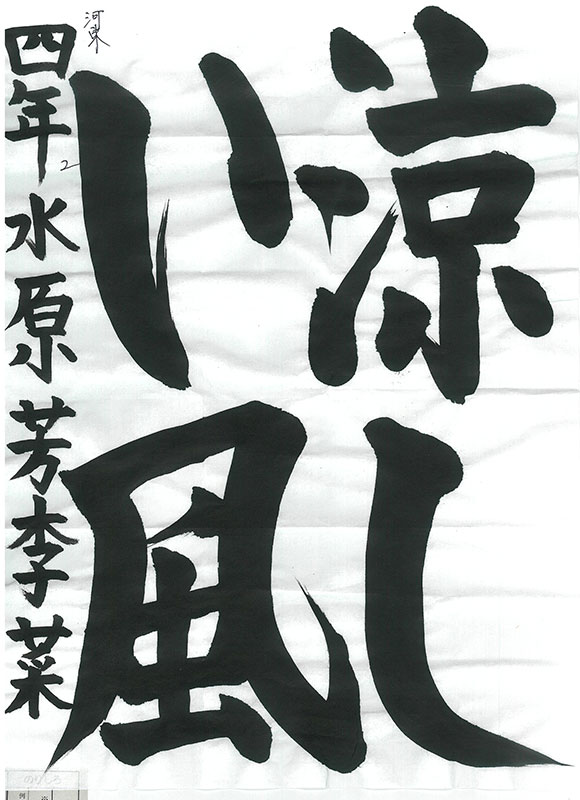 涼し
い風
河東
四年水原芳李菜
2
のりしろ